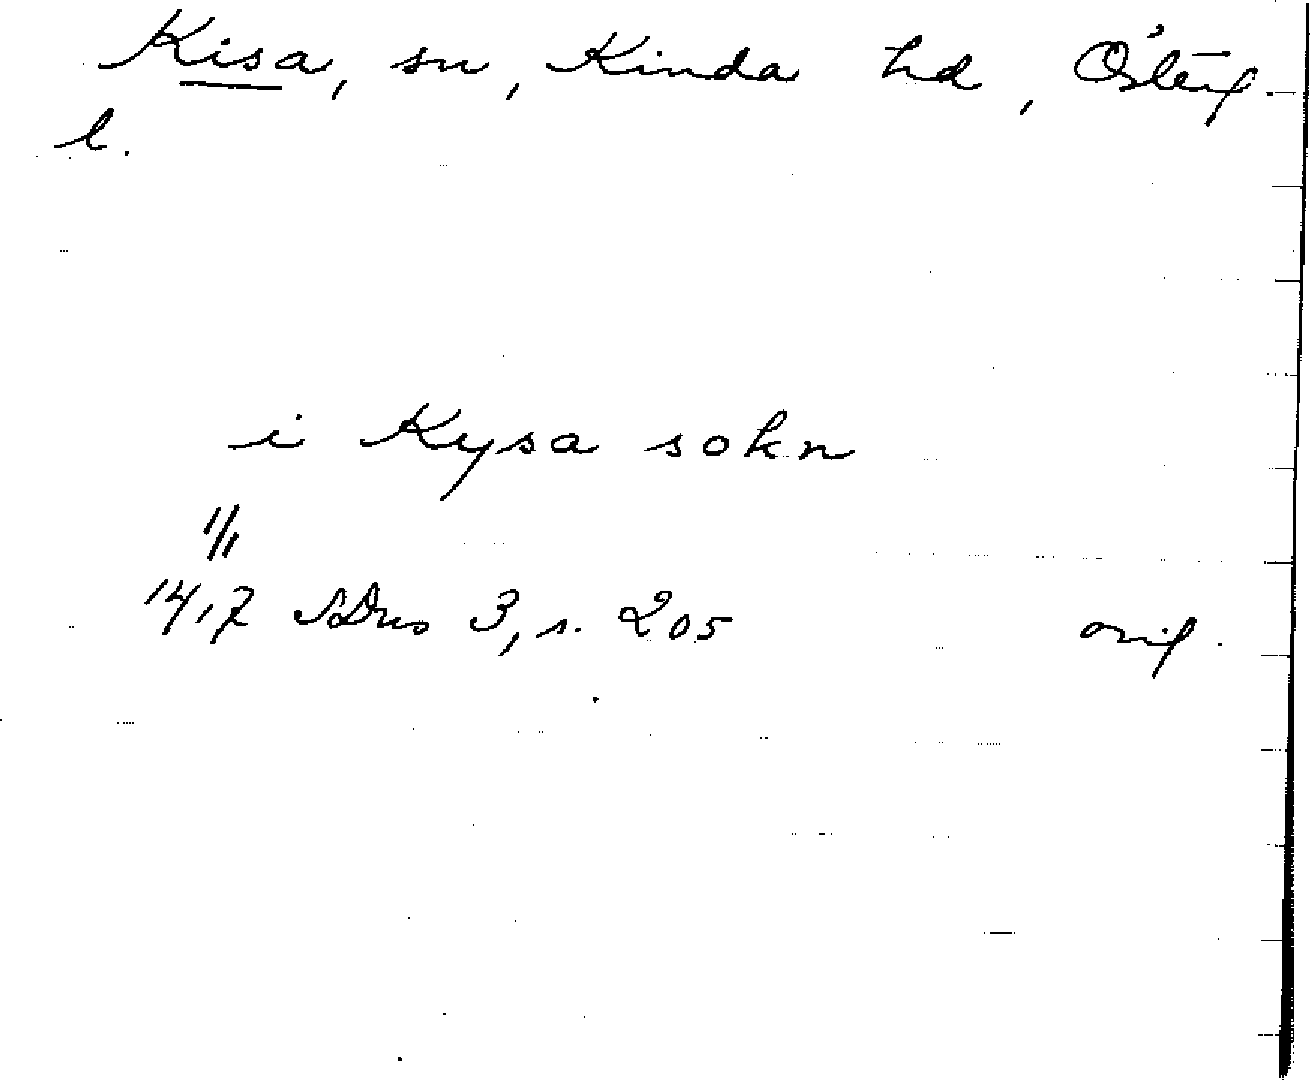 Kisa, sn, Kinda hd, Österg.
l.
i Kysa sokn
1/1
1417 SDns 3, s. 205 orig.